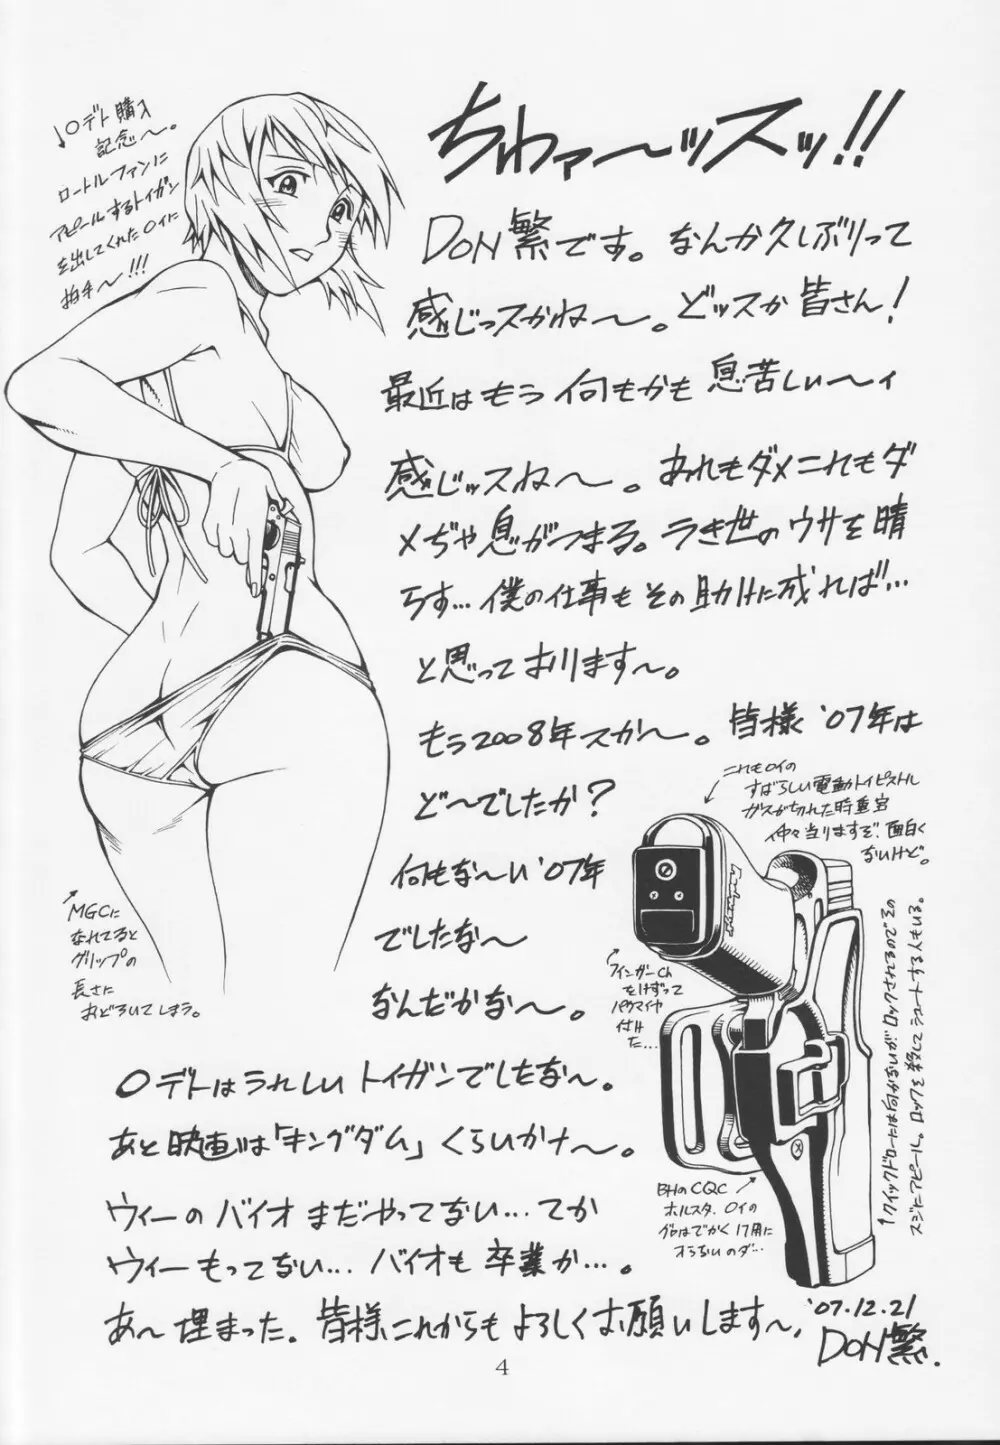 ちわァ〜ッスッ!!
DON繁です。なんか久しぶりって
感じっスかね〜。どッスか皆さん!
最近はもう何もかも息苦しい〜ィ
感じッスね〜。あれもダメこれもダ
メぢゃ息がつまる。うき世のウサを晴
らす…僕の仕事もその助けに成れば…
と思っております〜。
もう2008年スか〜。皆様'07年は
ど〜でしたか?
何もな〜い'07年
でしたな〜
なんだかな〜。
〇デトはうれしいトイガンでしたな〜。
あと映画は「キングダム」くらいかナ〜。
ウィーのバイオまだやってない…てか
ウィーもってない…バイオも卒業か…。
あ〜埋まった。皆様これからもよろしくお願いします〜。
'07.12.21
DON繁.
↓〇デト購入
記念〜。
ロートルファンに
アピールするトイガン
を出してくれた〇イに
拍手〜!!!
MGCに
なれてると
グリップの
長さに
おどろいてしまう。
これも〇イの
すばらしい電動トイピストル
ガスが切れた時重宝
仲々当りますぞ、面白く
ないけど。
フィンガーch
をけずって
パクマイヤ
付けた…
BHのCQC
ホルスタ、〇イの
グロはでかく17用に
入らないのダ…
↑クイックドローには向かないがロックされるのでその
スジにアピール。ロックを殺してシュートする人もいる。
4